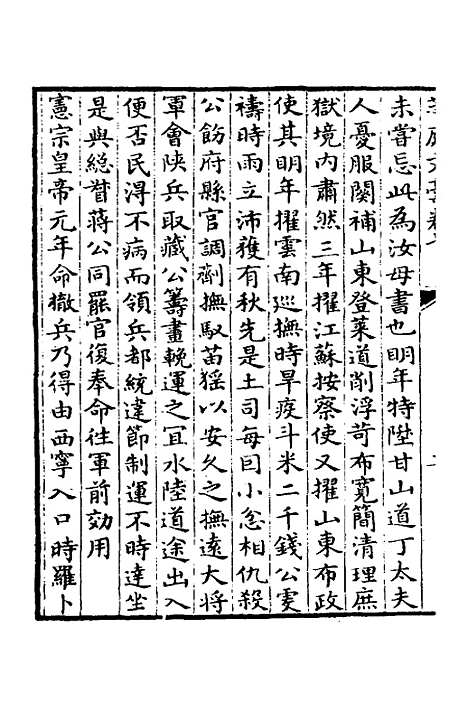 未嘗忘此為汝母書也明年特陞甘山道丁太夫
人憂服闋補山東登萊道削浮苛布寬簡清理庶
獄境内肅然三年擢江蘇按察使又擢山東布政
使其明年擢雲南巡撫時旱疫斗米二千錢公虔
禱時雨立沛獲有秋先是土司每因小忿相仇殺
公飭府縣官調劑撫馭苗猺以安久之撫遠大將
軍會陝兵取藏公籌畫輓運之宜水陸道途出入
便否民淂不病而領兵都統違節制運不時達坐
是與総督蔣公同罷官復奉命往軍前効用
憲宗皇帝元年命撤兵乃得由西寧入口時羅卜